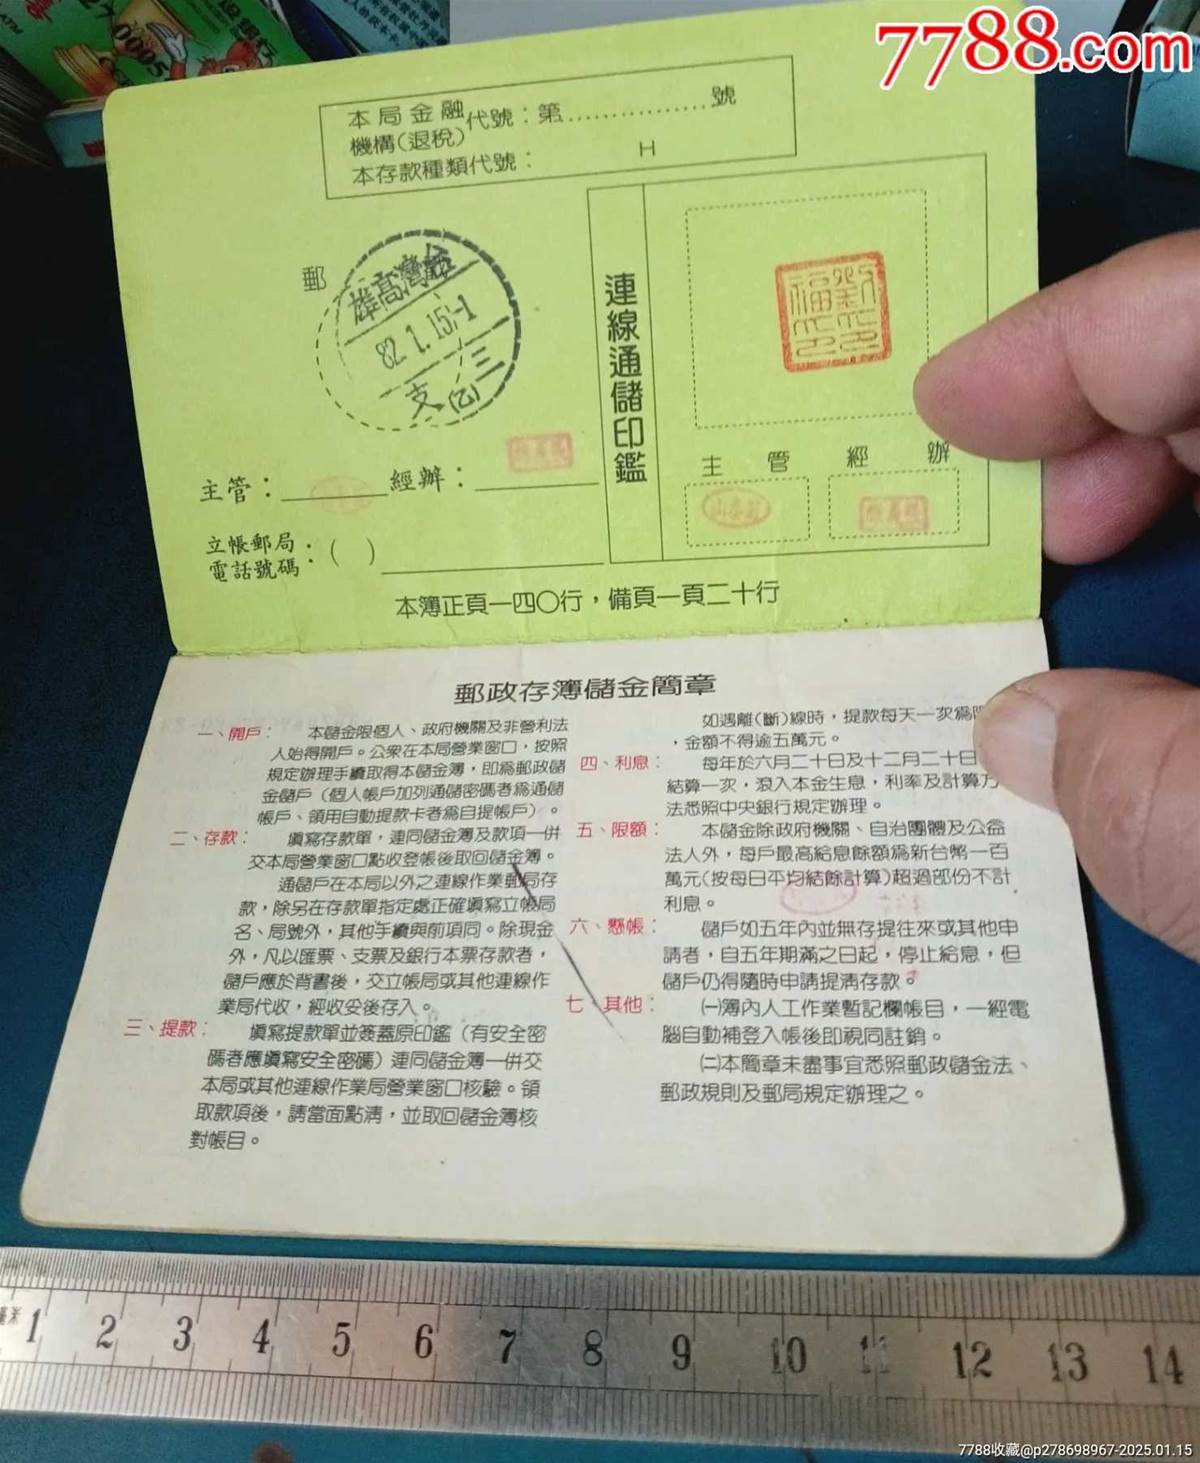 7788.com
本局金融機構(退稅)代號：第……………號
本存款種類代號： H
郵
台灣高雄
82.1.15.-1
三
支(乙)
連線通儲印鑑
主管
經辦
主管：
經辦：
立帳郵局電話號碼：( )
本簿正頁一四〇行，備頁一頁二十行
郵政存簿儲金簡章
一、開戶： 本儲金限個人、政府機關及非營利法
人始得開戶。公眾在本局營業窗口，按照
規定辦理手續取得本儲金簿，即為郵政儲
金儲戶（個人帳戶加列通儲密碼者為通儲
帳戶、領用自動提款卡者為自提帳戶）。
二、存款： 填寫存款單，連同儲金簿及款項一併
交本局營業窗口點收登帳後取回儲金簿。
通儲戶在本局以外之連線作業郵局存
款，除另在存款單指定處正確填寫立帳局
名、局號外，其他手續與前項同。除現金
外，凡以匯票、支票及銀行本票存款者，
儲戶應於背書後，交立帳局或其他連線作
業局代收，經收妥後存入。
三、提款： 填寫提款單並簽蓋原印鑑（有安全密
碼者應填寫安全密碼）連同儲金簿一併交
本局或其他連線作業局營業窗口核驗。領
取款項後，請當面點清，並取回儲金簿核
對帳目。
如遇離(斷)線時，提款每天一次為
，金額不得逾五萬元。
四、利息： 每年於六月二十日及十二月二十日
結算一次，滾入本金生息，利率及計算方
法悉照中央銀行規定辦理。
五、限額： 本儲金除政府機關、自治團體及公益
法人外，每戶最高給息餘額為新台幣一百
萬元(按每日平均結餘計算)超過部份不計
利息。
六、懸帳： 儲戶如五年內並無存提往來或其他申
請者，自五年期滿之日起，停止給息，但
儲戶仍得隨時申請提清存款。
七、其他： ㈠簿內人工作業暫記欄帳目，一經電
腦自動補登入帳後即視同註銷。
㈡本簡章未盡事宜悉照郵政儲金法、
郵政規則及郵局規定辦理之。
1 2 3 4 5 6 7 8 9 10 11 12 13 14
7788收藏@p278698967-2025.01.15